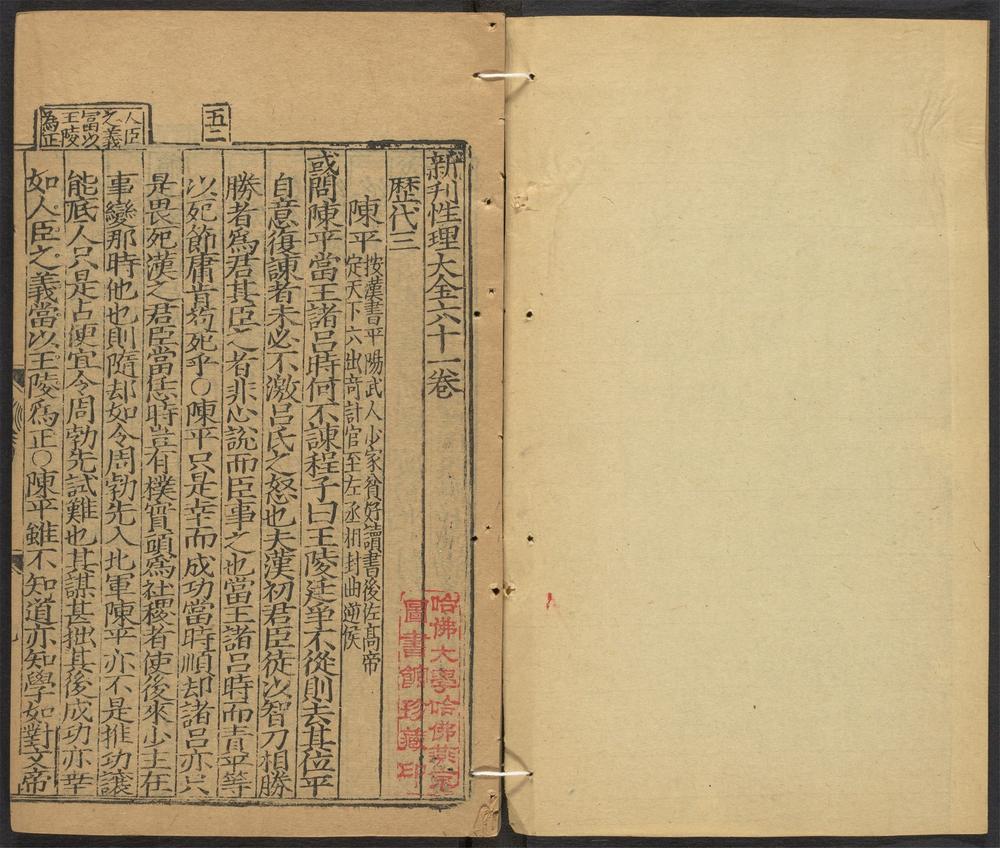 新刊性理大全六十一卷
歷代三
陳平
按漢書平陽武人少家貧好讀書後佐高帝
定天下六出奇計官至左丞相封曲逆侯
或問陳平當王諸呂時何不諫程子曰王陵廷爭不從則去其位平
自意復諫者未必不激呂氏之怒也夫漢初君臣徒以智力相勝
勝者爲君其臣之者非心說而臣事之也當王諸呂時而責平等
以死節庸肯苟死乎○陳平只是幸而成功當時順却諸呂亦只
是畏死漢之君臣當恁時豈有樸實頭爲社稷者使後來少主在
事變那時他也則隨却如令周勃先入北軍陳平亦不是推功讓
能底人只是占便宜令周勃先試難也其謀甚拙其後成功亦幸
如人臣之義當以王陵爲正○陳平雖不知道亦知學如對文帝
五二
人臣
之義
當以
王陵
為正
哈佛大學哈佛燕京
圖書館珍藏印